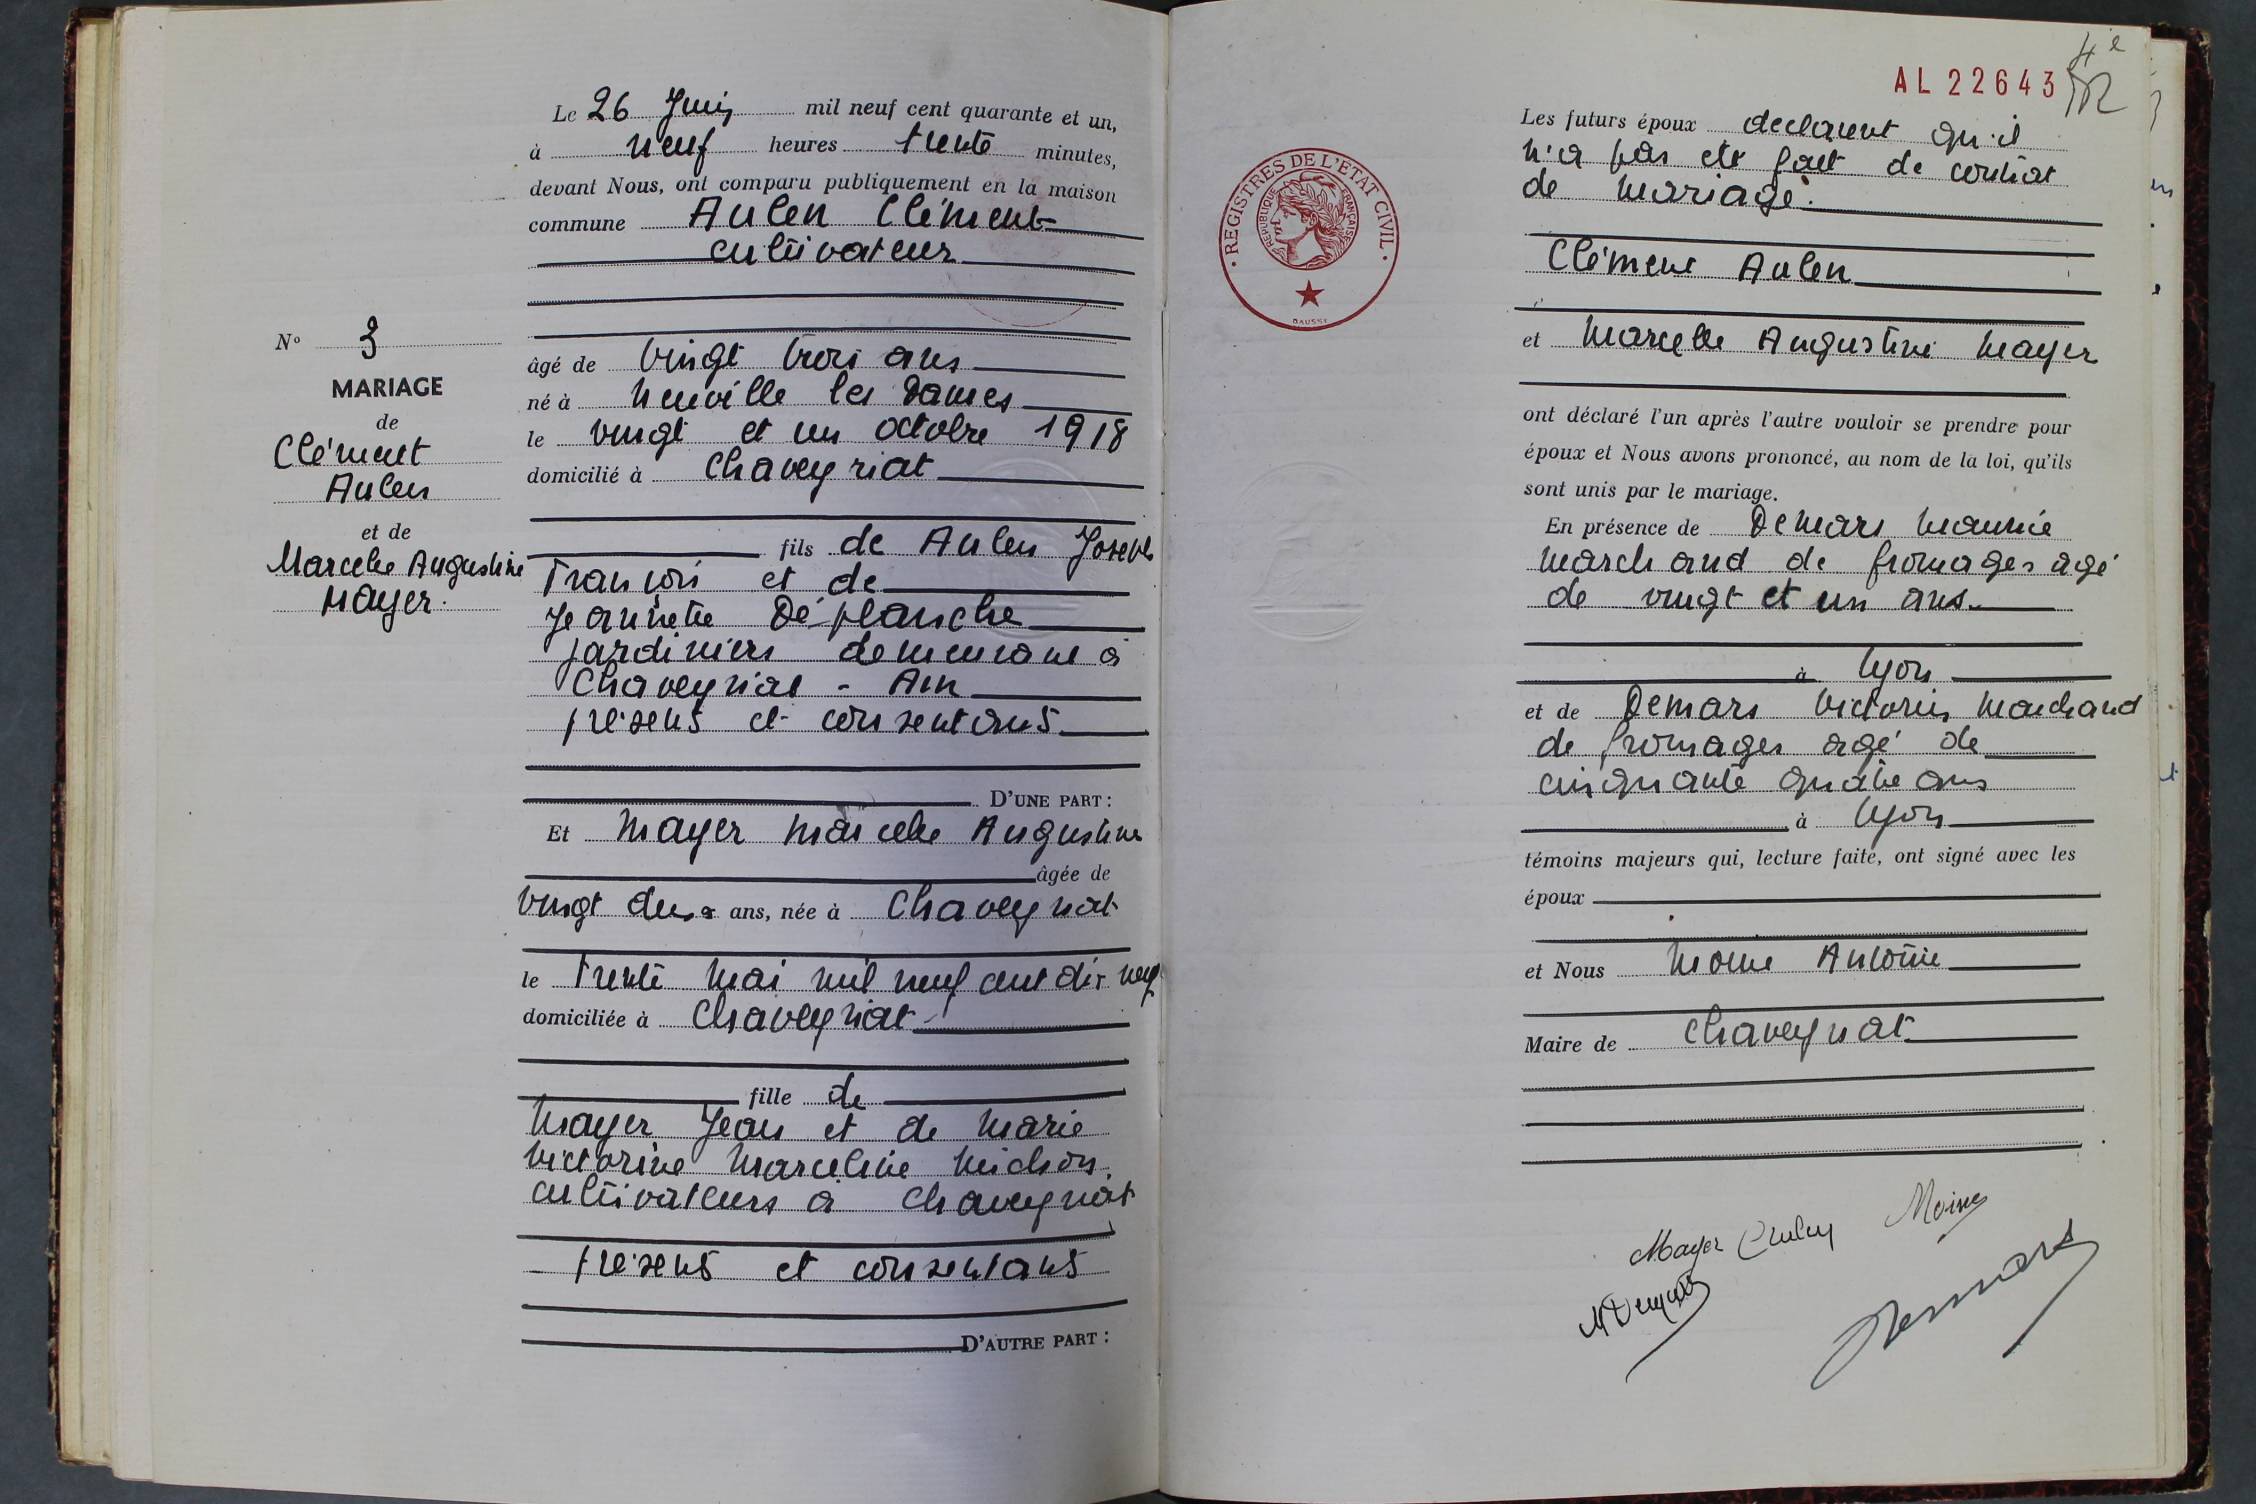 Le 26 Juin mil neuf cent quarante et un,
à neuf heures trente minutes,
devant Nous, ont comparu publiquement en la maison
commune Aulen Clément
cultivateur
âgé de vingt trois ans
né à Neuville les Dames
le vingt et un octobre 1918
domicilié à Chaveyriat
fils de Aulen Joseph
François et de
Jeannette Déplanche
jardiniers demeurant à
Chaveyriat - Ain
présents et consentants
D'UNE PART :
Et Mayer Marcelle Augustine
âgée de
vingt deux ans, née à Chaveyriat
le trente Mai mil neuf cent dix neuf
domiciliée à Chaveyriat
fille de
Mayer Jean et de Marie
Victorine Marceline Michon
cultivateurs à Chaveyriat
présents et consentants
D'AUTRE PART :
N° 3
MARIAGE
de
Clément
Aulen
et de
Marcelle Augustine
Mayer.
AL 22643
4e
Les futurs époux déclarent qu'il
n'a pas été fait de contrat
de mariage.
Clément Aulen
et Marcelle Augustine Mayer
ont déclaré l'un après l'autre vouloir se prendre pour
époux et Nous avons prononcé, au nom de la loi, qu'ils
sont unis par le mariage.
En présence de Demars Maurice
marchand de fromages agé
de vingt et un ans
à Lyon
et de Demars Victorin Marchand
de fromages agé de
cinquante quatre ans
à Lyon
témoins majeurs qui, lecture faite, ont signé avec les
époux
et Nous Moine Antoine
Maire de Chaveyriat
Mayer Moine
Demars
REGISTRES DE L'ETAT CIVIL
REPUBLIQUE FRANÇAISE
DAUSSY